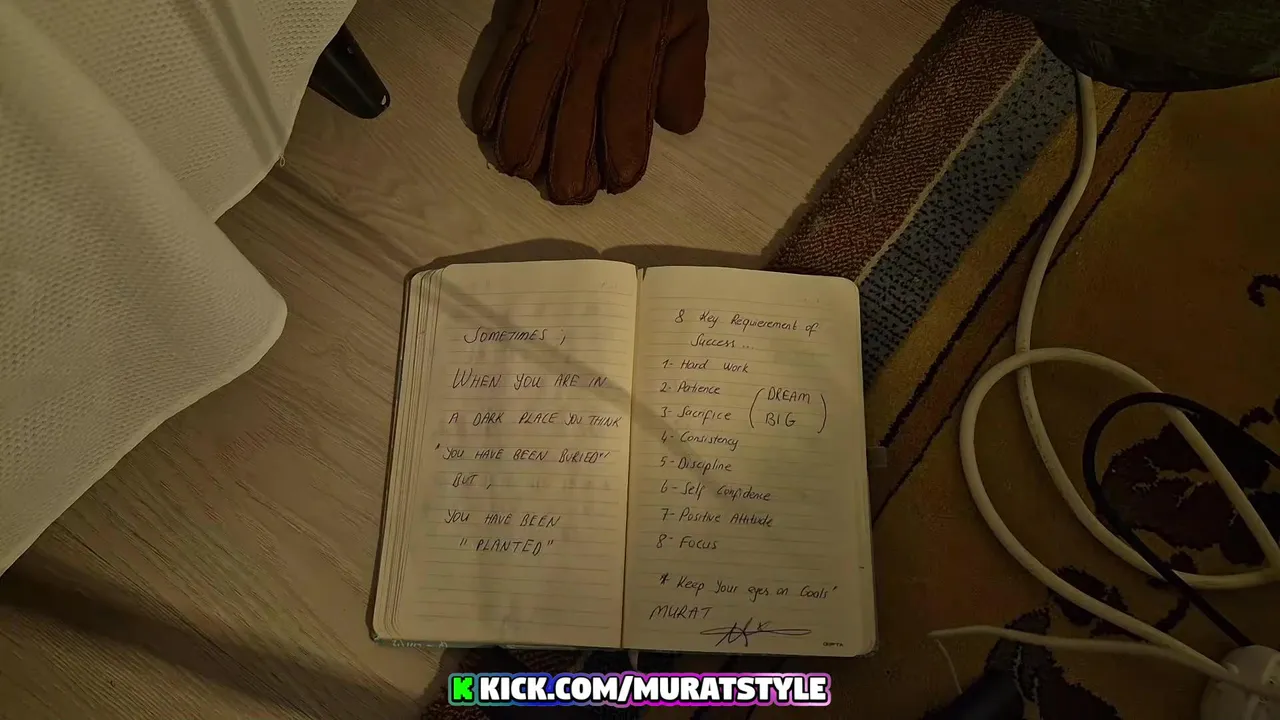 SOMETIMES ;
WHEN YOU ARE IN
A DARK PLACE YOU THINK
"YOU HAVE BEEN BURIED"
BUT ,
YOU HAVE BEEN
"PLANTED"
8 Key Requierement of
Success...
1- Hard work
2- Patience
3- Sacrifice
(DREAM
BIG)
4- Consistency
5- Discipline
6- Self Confidence
7- Positive Attitude
8- Focus
"Keep your eyes on Goals"
MURAT
KICK.COM/MURATSTYLE